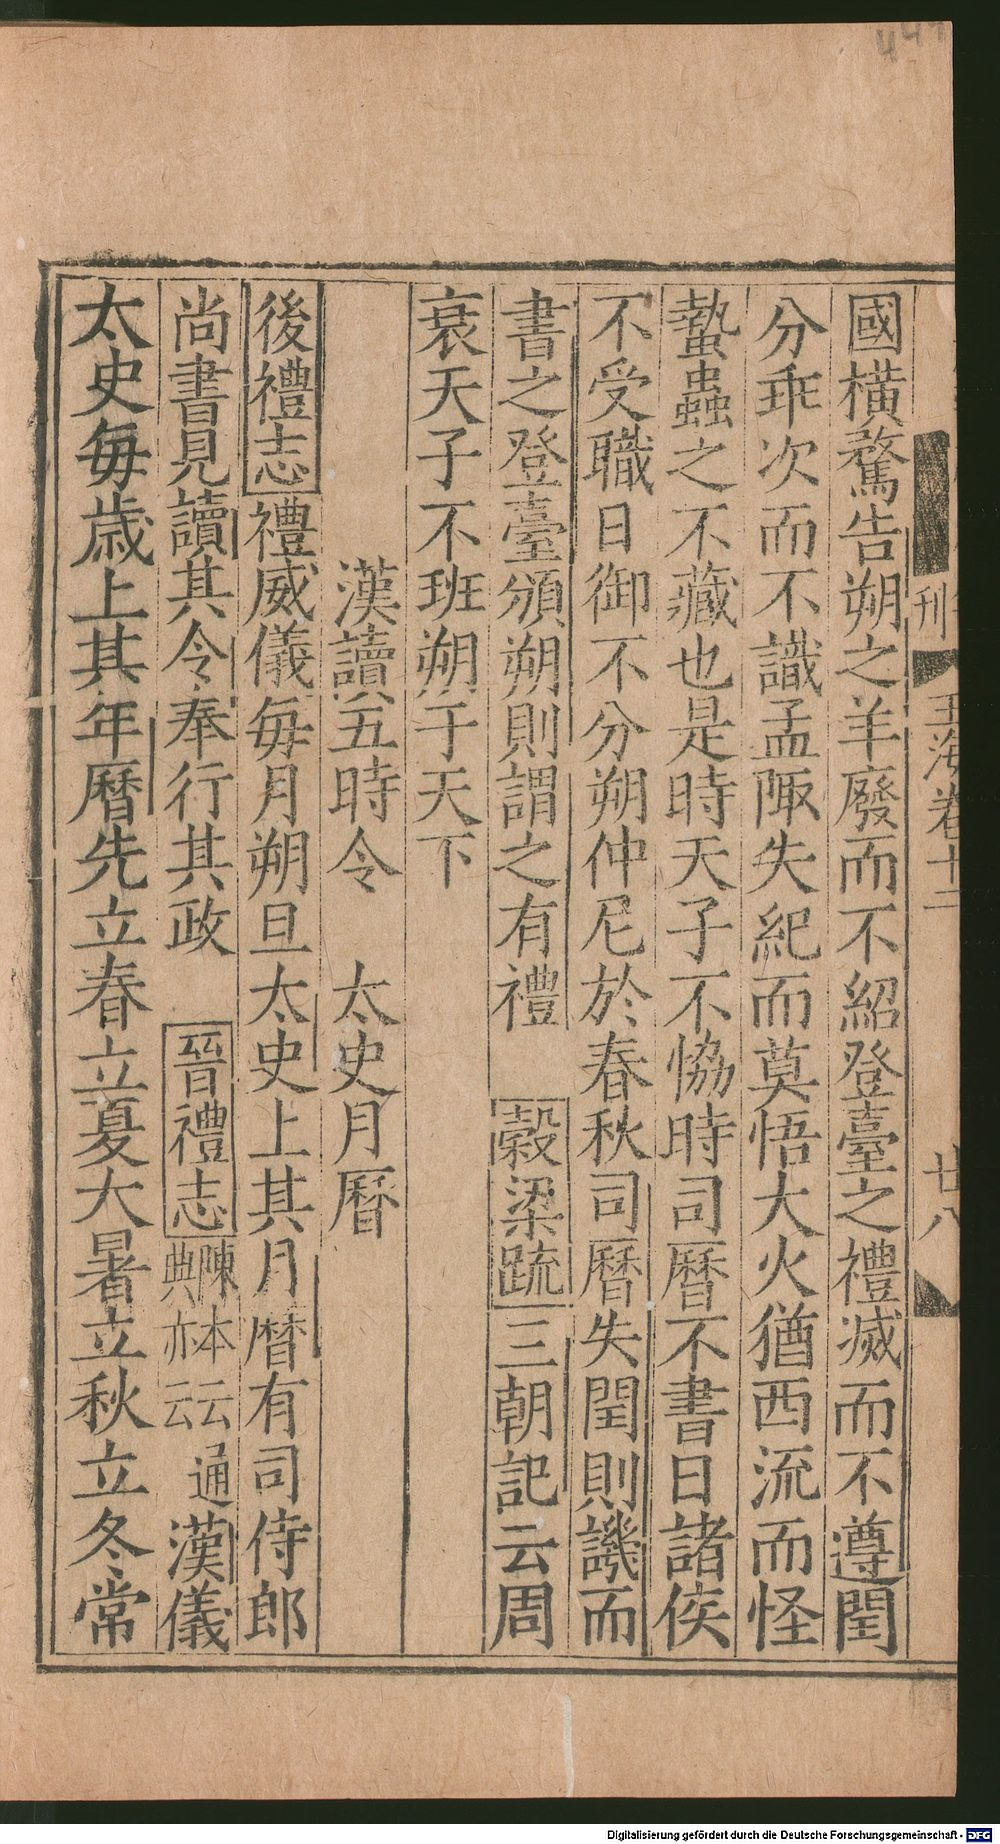 國橫騖告朔之羊廢而不紹登臺之禮滅而不遵閏
分乖次而不識孟陬失紀而莫悟大火猶西流而怪
蟄蟲之不藏也是時天子不協時司曆不書日諸侯
不受職日御不分朔仲尼於春秋司曆失閏則譏而
書之登臺頒朔則謂之有禮 穀梁疏三朝記云周
衰天子不班朔于天下
漢讀五時令 太史月曆
後禮志禮威儀每月朔旦太史上其月曆有司侍郎
尚書見讀其令奉行其政 晉禮志陳本云典亦云通漢儀
太史每歲上其年曆先立春立夏大暑立秋立冬常
刊 玉海卷十二 廿八
Digitalisierung gefördert durch die Deutsche Forschungsgemeinschaft - DFG